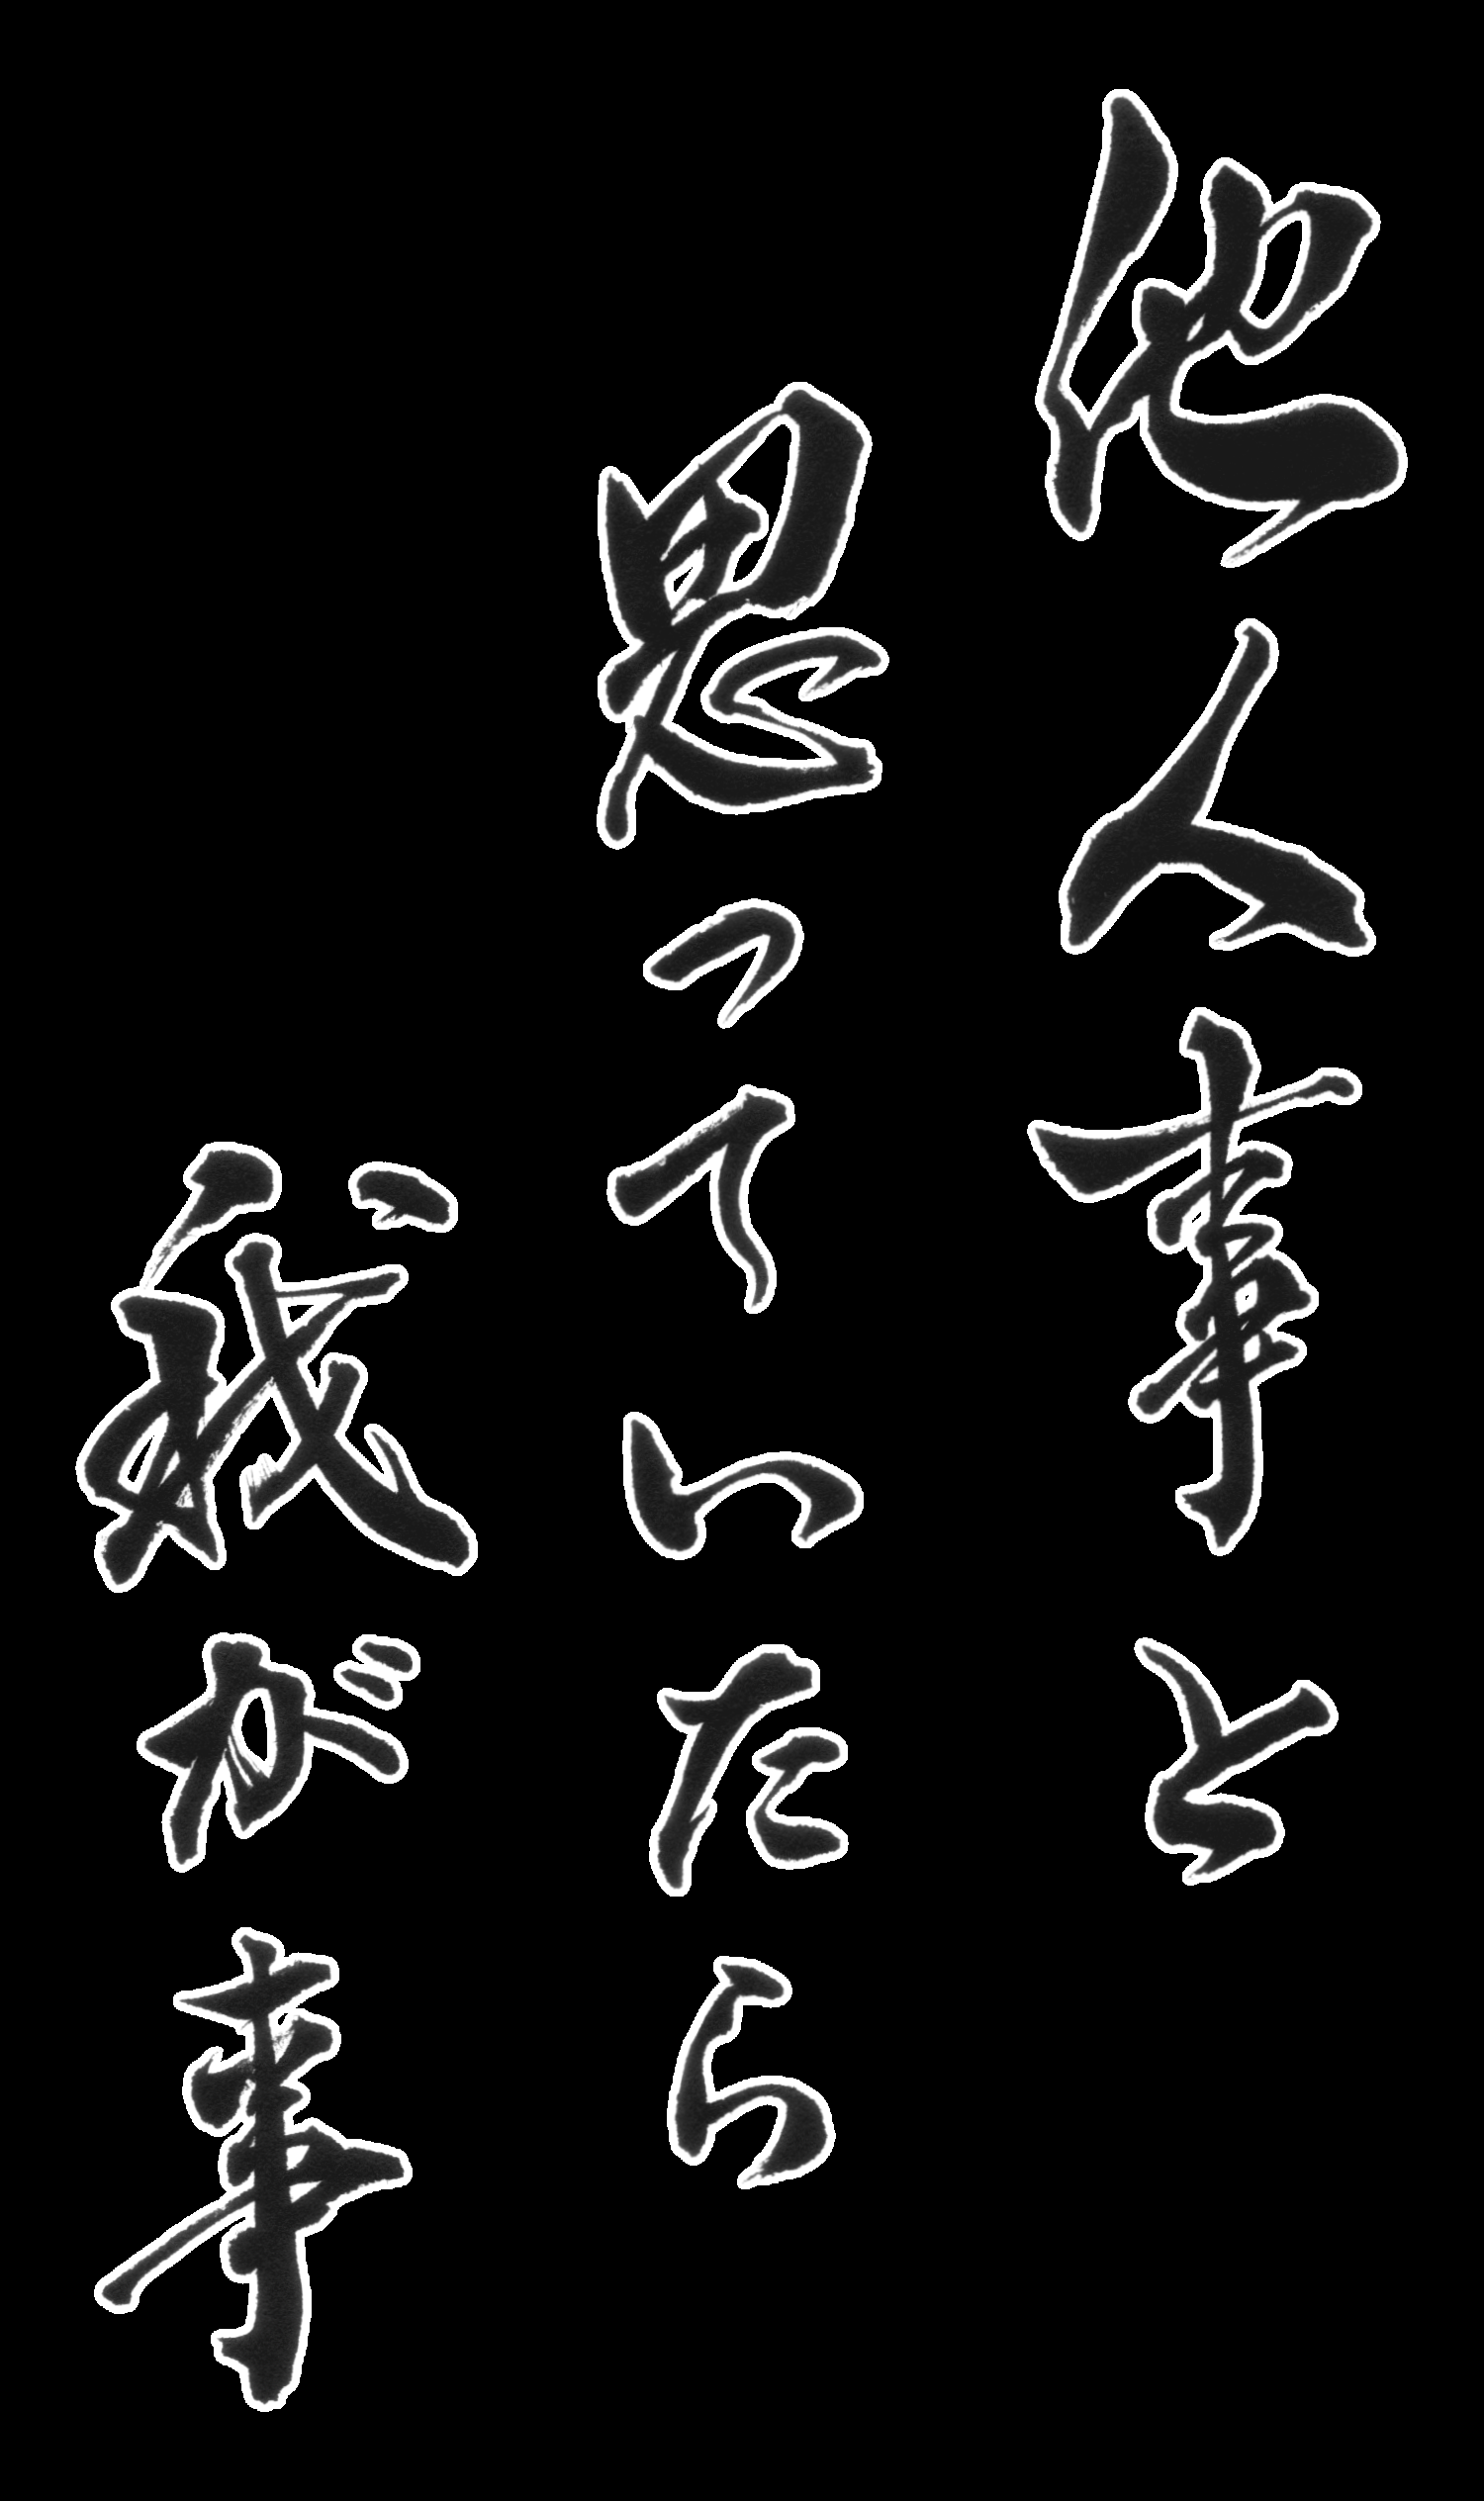 他人事と
思っていたら
我が事